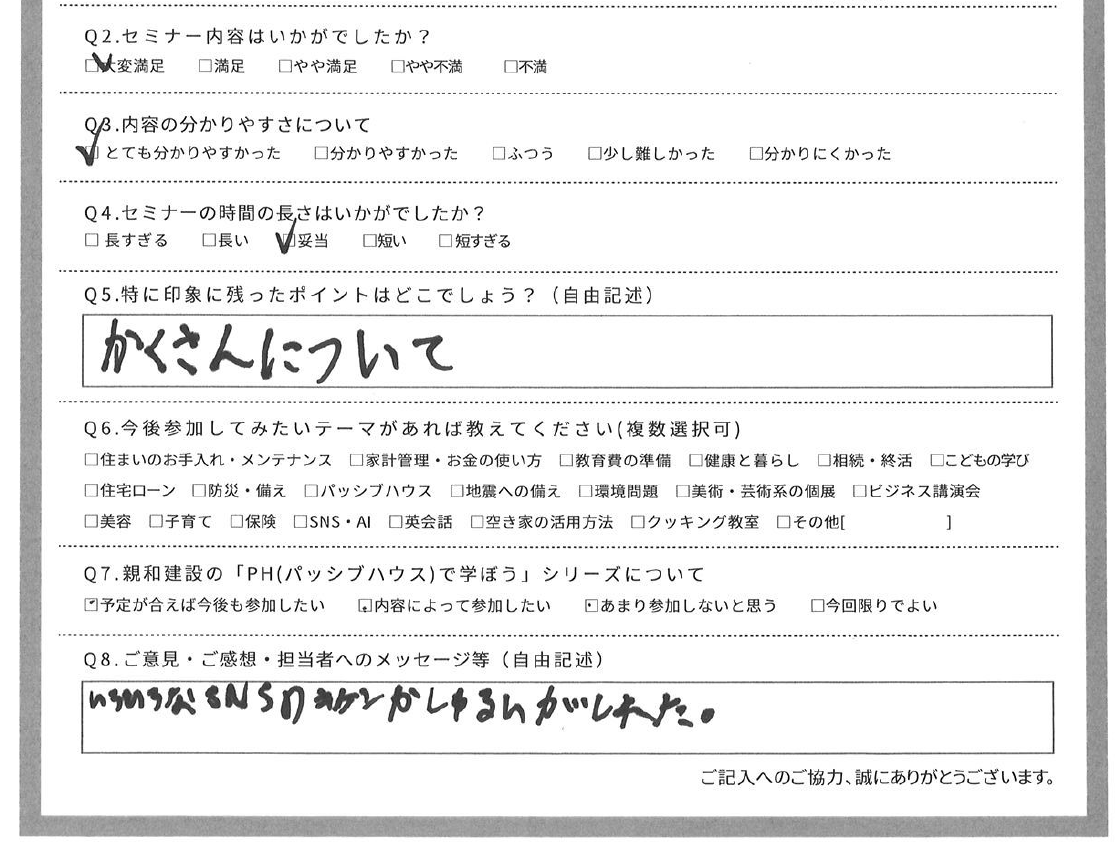 Q2.セミナー内容はいかがでしたか？
☑大変満足 □満足 □やや満足 □やや不満 □不満
Q3.内容の分かりやすさについて
☑とても分かりやすかった □分かりやすかった □ふつう □少し難しかった □分かりにくかった
Q4.セミナーの時間の長さはいかがでしたか？
□長すぎる □長い ☑妥当 □短い □短すぎる
Q5.特に印象に残ったポイントはどこでしょう？（自由記述）
かくさんについて
Q6.今後参加してみたいテーマがあれば教えてください(複数選択可)
□住まいのお手入れ・メンテナンス □家計管理・お金の使い方 □教育費の準備 □健康と暮らし □相続・終活 □こどもの学び
□住宅ローン □防災・備え □パッシブハウス □地震への備え □環境問題 □美術・芸術系の個展 □ビジネス講演会
□美容 □子育て □保険 □SNS・AI □英会話 □空き家の活用方法 □クッキング教室 □その他[ ]
Q7.親和建設の「PH(パッシブハウス)で学ぼう」シリーズについて
□予定が合えば今後も参加したい □内容によって参加したい □あまり参加しないと思う □今回限りでよい
Q8.ご意見・ご感想・担当者へのメッセージ等（自由記述）
いろいろなSNSの
ご記入へのご協力、誠にありがとうございます。